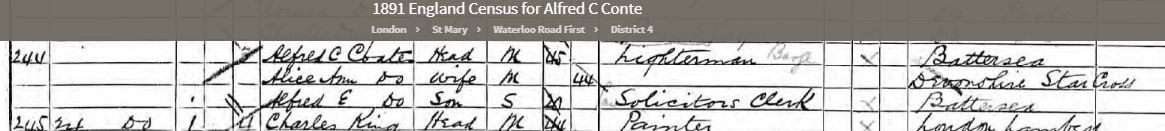 1891 England Census for Alfred C Conte
London > St Mary > Waterloo Road First > District 4
244 Alfred C Coate Head M 45 Lighterman Barge Battersea
Alice Ann Do Wife M 44 Devonshire Star Cross
1 Alfred E Do Son S 20 Solicitors Clerk Battersea
245 Do 1 Charles King Head M 44 Painter London Lambeth